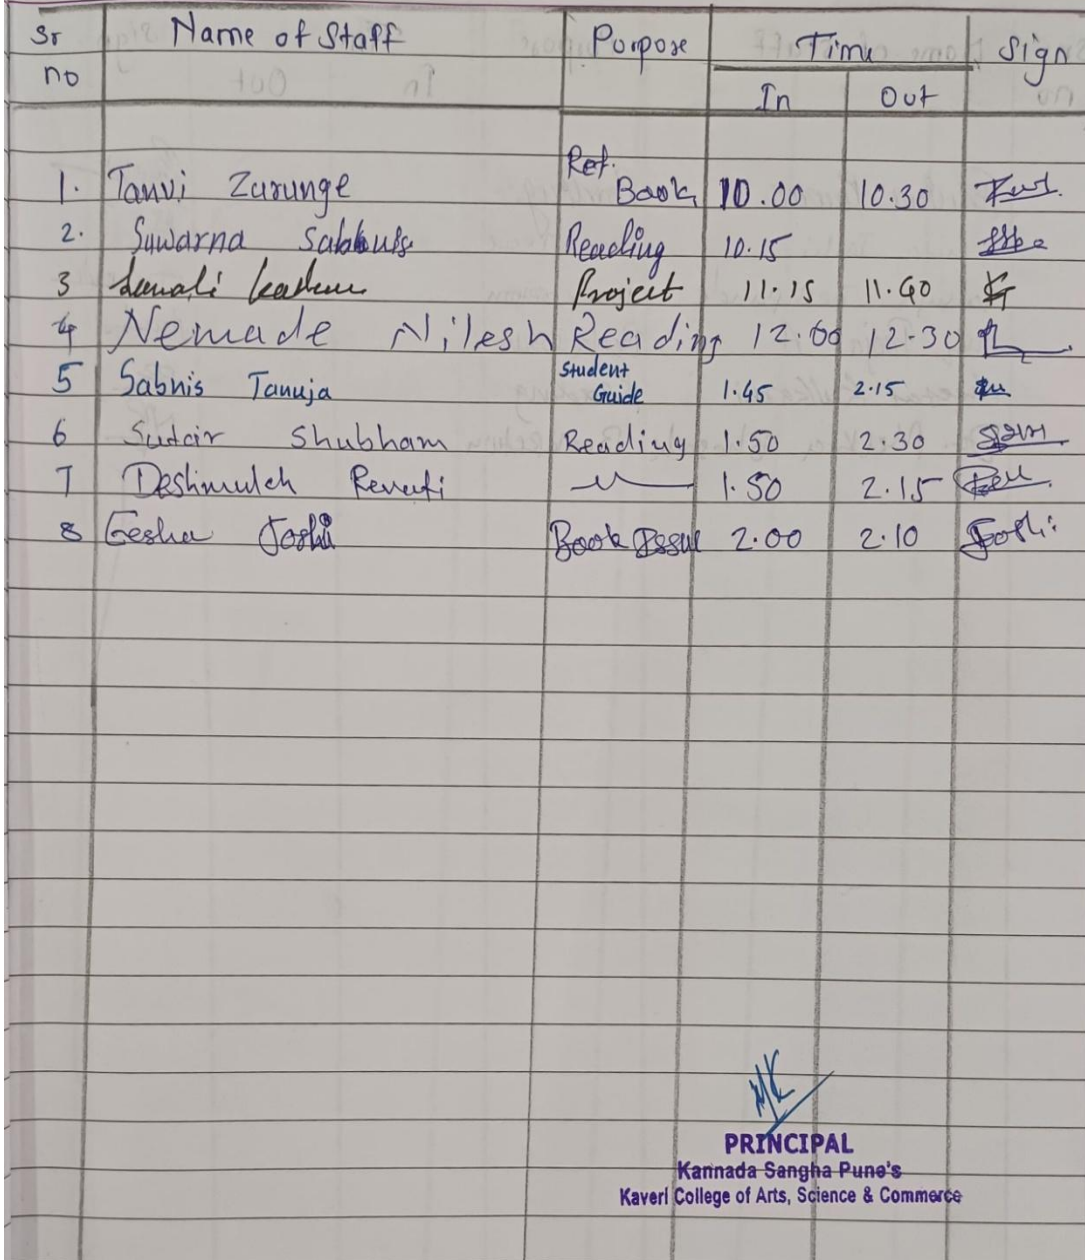 Sr Name of Staff Purpose Time Sign
no In Out
1. Tanvi Zurunge Ref. Book 10.00 10.30
2. Suwarna Reading 10.15
3 Project 11.15 11.40
4 Nemade Nilesh Reading 12.00 12.30
5 Sabnis Tanuja Student Guide 1.45 2.15
6 Sutar Shubham Reading 1.50 2.30
7 Deshmukh Revati 1.50 2.15
8 Eesha Joshi Book Issue 2.00 2.10 Joshi
MK
PRINCIPAL
Kannada Sangha Pune's
Kaveri College of Arts, Science & Commerce